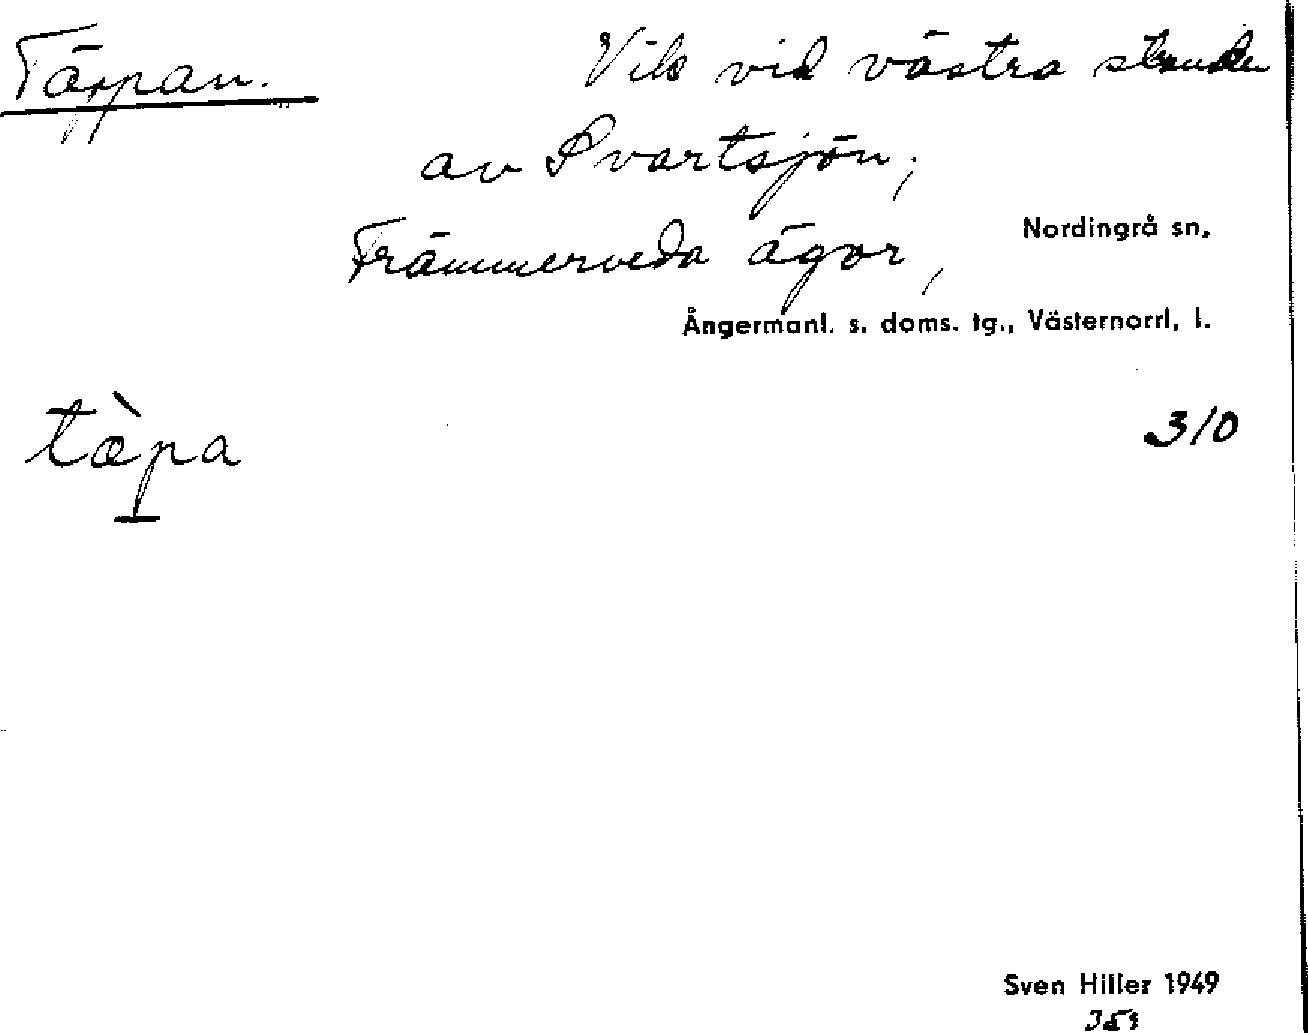 Täppan.
Vik vid västra stranden
av Svartsjön,
Främmerveda ägor,
Nordingrå sn,
Ångermanl. s. doms. tg., Västernorrl. l.
tæ̀pa
310
Sven Hiller 1949